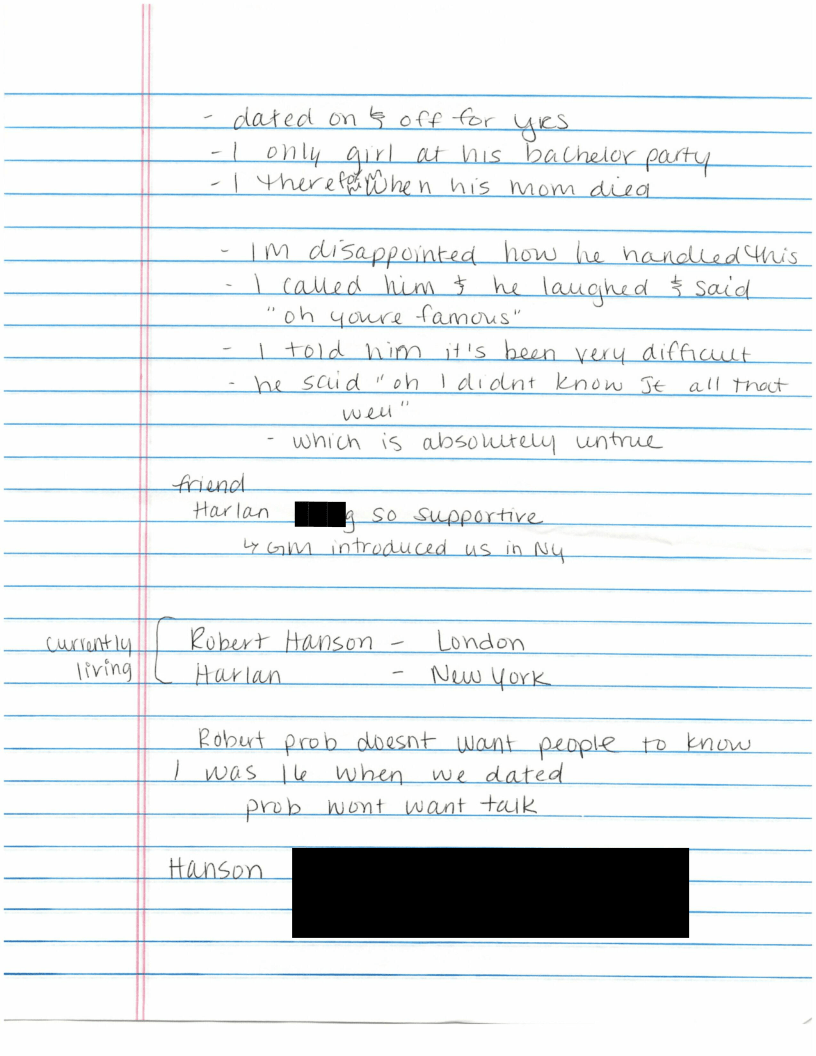 - dated on & off for yrs
- I only girl at his bachelor party
- I there for him when his mom died
- Im disappointed how he handled this
- I called him & he laughed & said
"oh youre famous"
- I told him it's been very difficult
- he said "oh I didnt know JE all that
well"
- which is absolutely untrue
friend
Harlan g so supportive
↳ GM introduced us in NY
currently living
Robert Hanson - London
Harlan - New York
Robert prob doesnt want people to know
I was 16 when we dated
prob wont want talk
Hanson